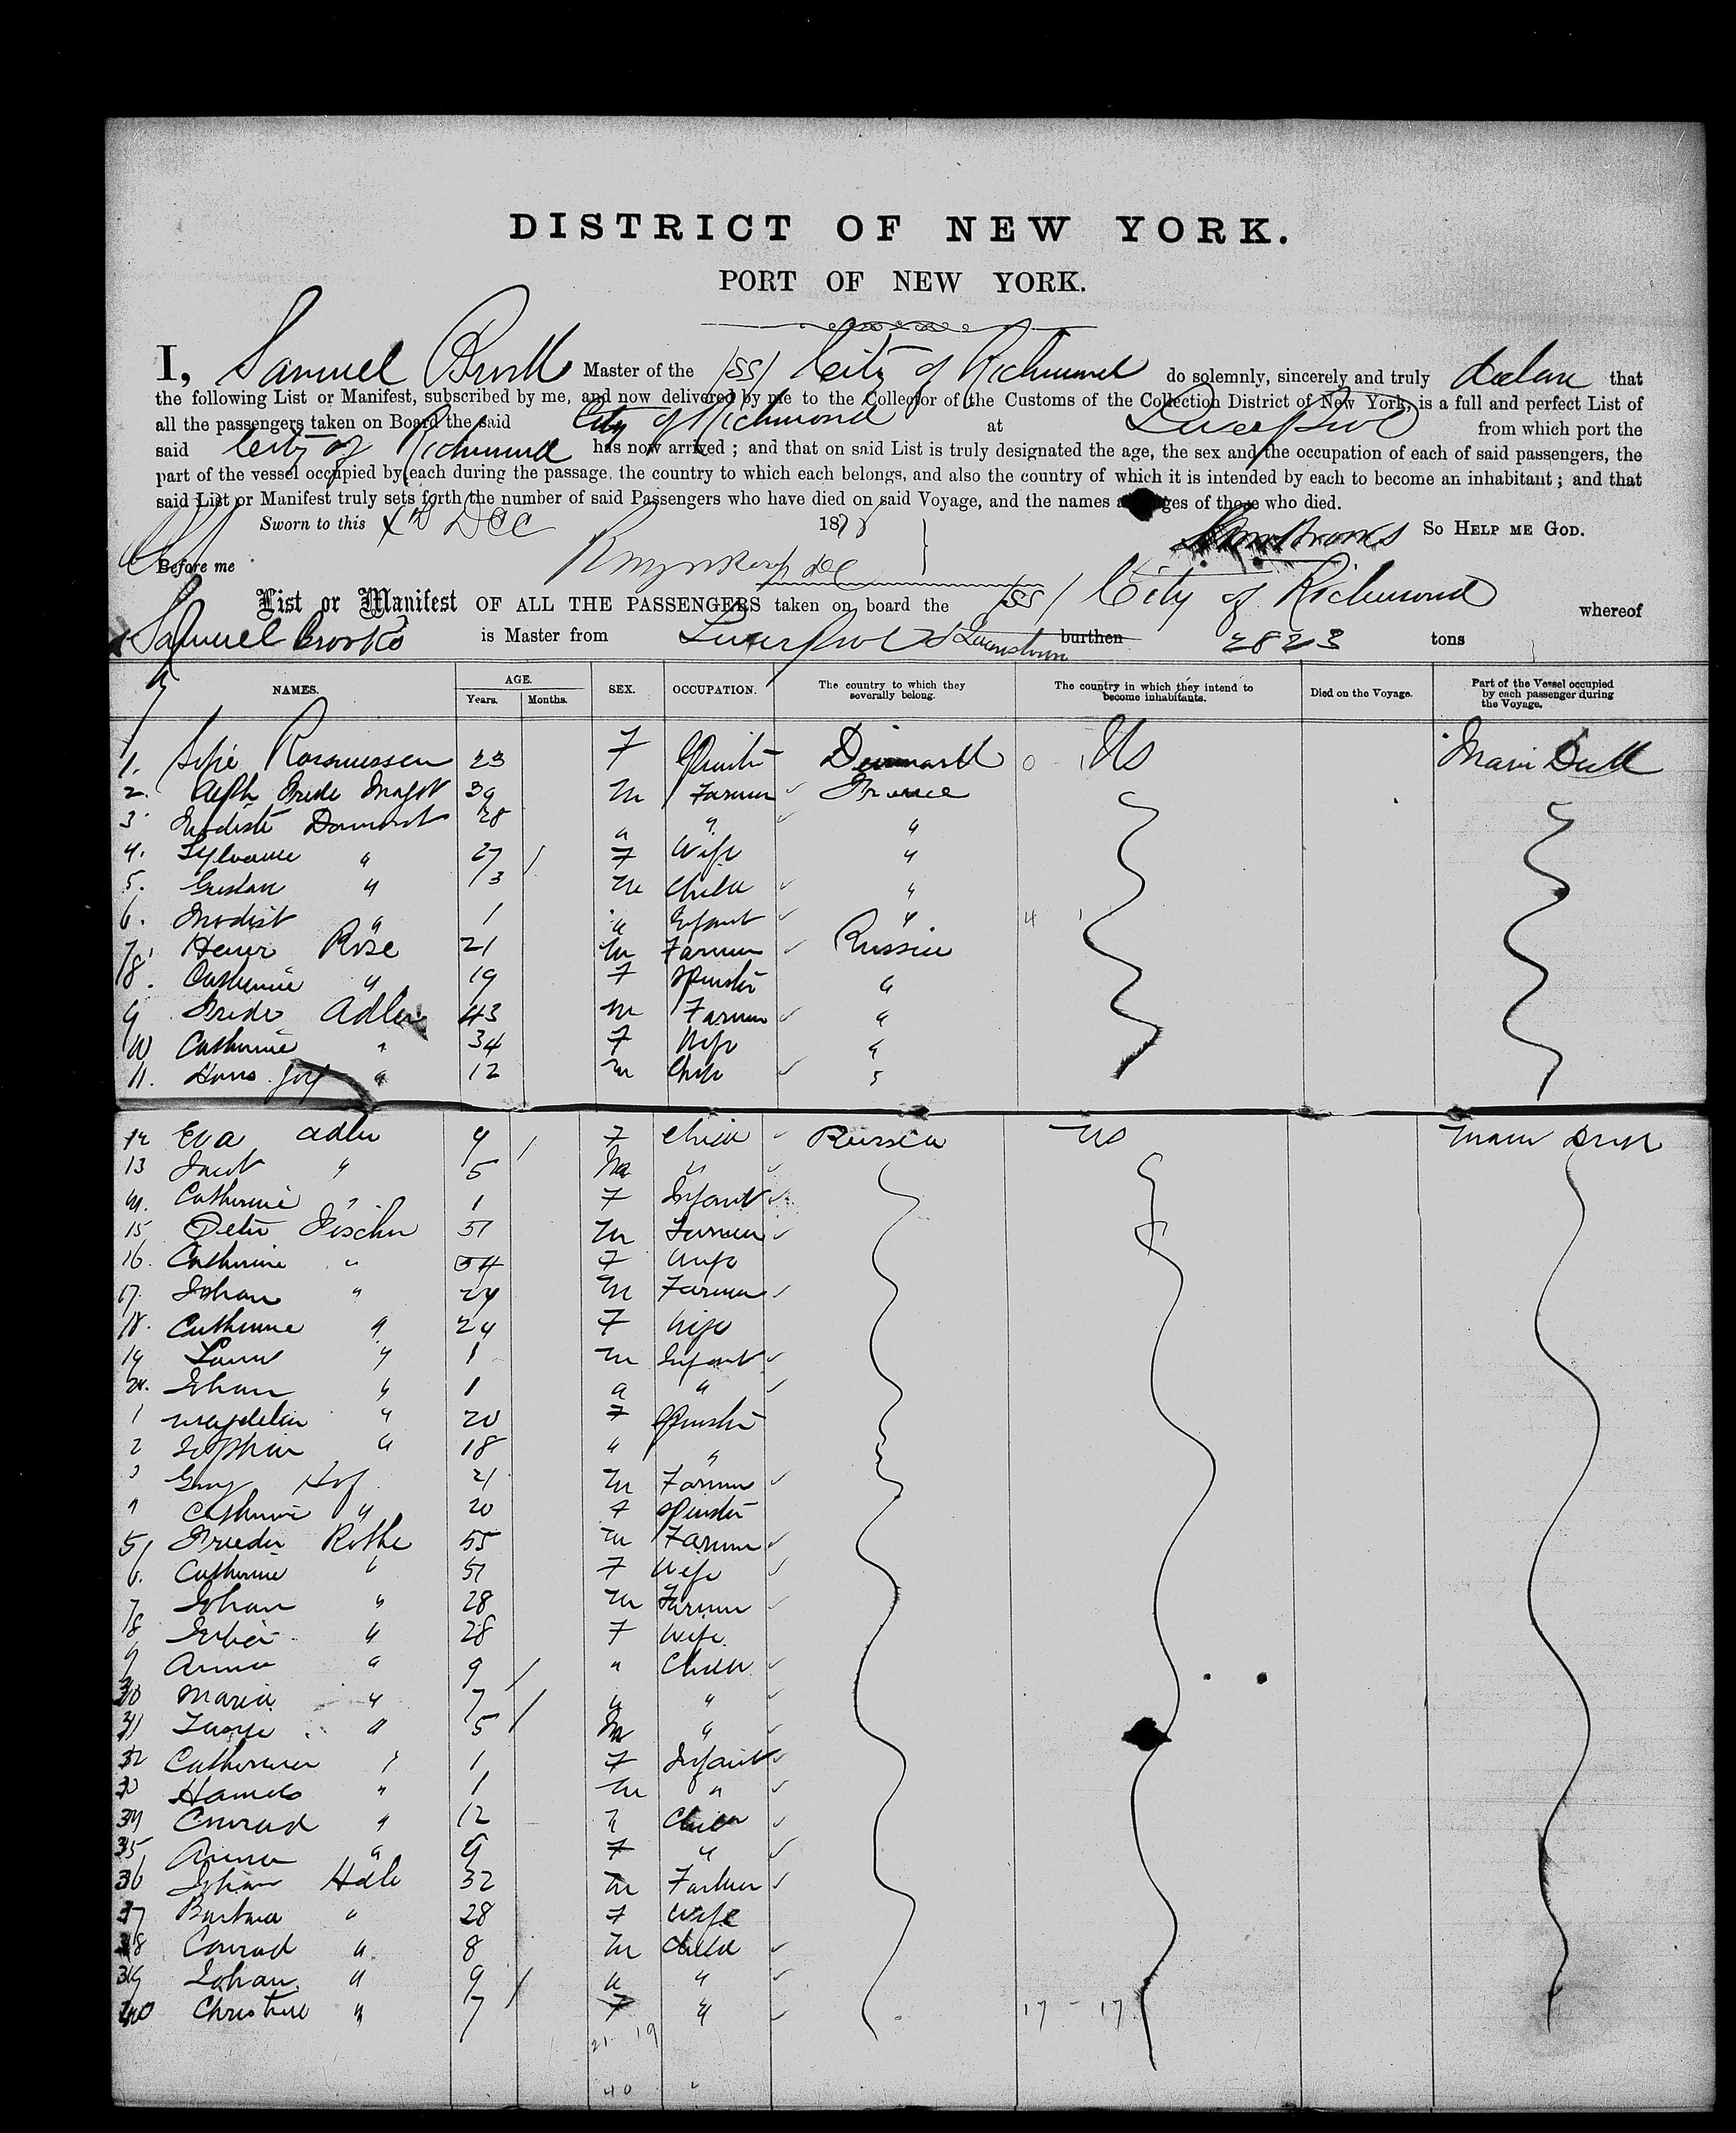 DISTRICT OF NEW YORK.
PORT OF NEW YORK.
I, Samuel Brook Master of the (SS) City of Richmond do solemnly, sincerely and truly declare that
the following List or Manifest, subscribed by me, and now delivered by me to the Collector of the Customs of the Collection District of New York, is a full and perfect List of
all the passengers taken on Board the said City of Richmond at Liverpool from which port the
said City of Richmond has now arrived ; and that on said List is truly designated the age, the sex and the occupation of each of said passengers, the
part of the vessel occupied by each during the passage, the country to which each belongs, and also the country of which it is intended by each to become an inhabitant ; and that
said List or Manifest truly sets forth the number of said Passengers who have died on said Voyage, and the names ages of those who died.
Sworn to this Dec 187 So HELP ME GOD.
Before me
List or Manifest OF ALL THE PASSENGERS taken on board the (SS) City of Richmond whereof
Samuel Brooks is Master from Liverpool & Queenstown burthen 2823 tons
NAMES. AGE. Years. Months. SEX. OCCUPATION. The country to which they severally belong. The country in which they intend to become inhabitants. Died on the Voyage. Part of the Vessel occupied by each passenger during the Voyage.
1. Rasmussen 23 F Denmark US Main Deck
2. 39 m Farmer France
3 28 " " "
4. " 27 F Wife "
5. Gustav " 3 m Child "
6. Modist " 1 " Infant "
7. Rose 21 m Farmer Russia
8. Catherine " 19 F Spinster "
9 Adler 43 m Farmer "
10 Catherine " 34 F Wife "
11. " 12 m Child "
12 Eva Adler 9 F Child Russia US Main Deck
13 Jacob " 5 m "
14. Catherine " 1 F Infant
15 Peter Fischer 51 m Farmer
16. Catherine " 54 F Wife
17. Johan " 24 m Farmer
18. Catherine " 24 F Wife
19 " 1 m Infant
20. Johan " 1 " "
1 Magdelin " 20 F Spinster
2 Sophia " 18 " "
3 Hof 21 m Farmer
4 Catherine " 20 F Spinster
5 Frieder Rothe 55 m Farmer
6. Catherine " 51 F Wife
7 Johan " 28 m Farmer
8 " 28 F Wife
9 Anna " 9 " Child
30 Maria " 7 " "
31 " 5 m "
32 Catherina " 1 F Infant
33 " 1 m "
34 Conrad " 12 " Child
35 Anna " 9 F "
36 Johan 32 m Farmer
37 Barbara " 28 F Wife
38 Conrad " 8 m Child
39 Johan " 9 " "
40 Christine " 7 F "
17 - 17
21 19
40